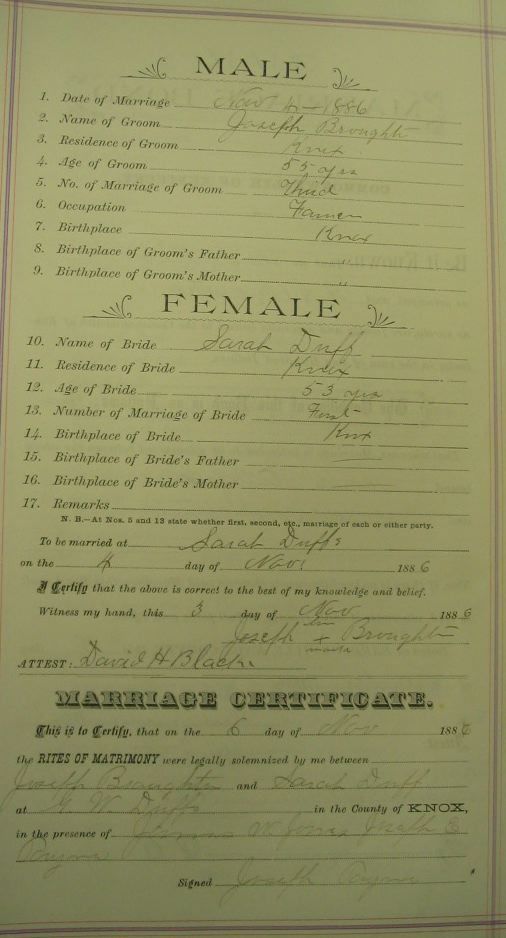 MALE
1. Date of Marriage Nov 4 - 1886
2. Name of Groom Joseph Broughton
3. Residence of Groom Knox
4. Age of Groom 55 yrs
5. No. of Marriage of Groom Third
6. Occupation Farmer
7. Birthplace Knox
8. Birthplace of Groom's Father "
9. Birthplace of Groom's Mother "
FEMALE
10. Name of Bride Sarah Duff
11. Residence of Bride Knox
12. Age of Bride 53 yrs
13. Number of Marriage of Bride First
14. Birthplace of Bride Knox
15. Birthplace of Bride's Father
16. Birthplace of Bride's Mother
17. Remarks
N. B.—At Nos. 5 and 13 state whether first, second, etc., marriage of each or either party.
To be married at Sarah Duffs
on the 4 day of Nov 1886
I Certify that the above is correct to the best of my knowledge and belief.
Witness my hand, this 3 day of Nov 1886
Joseph his + mark Broughton
ATTEST: David H Black
MARRIAGE CERTIFICATE.
This is to Certify, that on the 6 day of Nov 1886
the RITES OF MATRIMONY were legally solemnized by me between
Joseph Broughton and Sarah Duff
at G. W. Duffs in the County of KNOX,
in the presence of W Jones Joseph
Signed Joseph